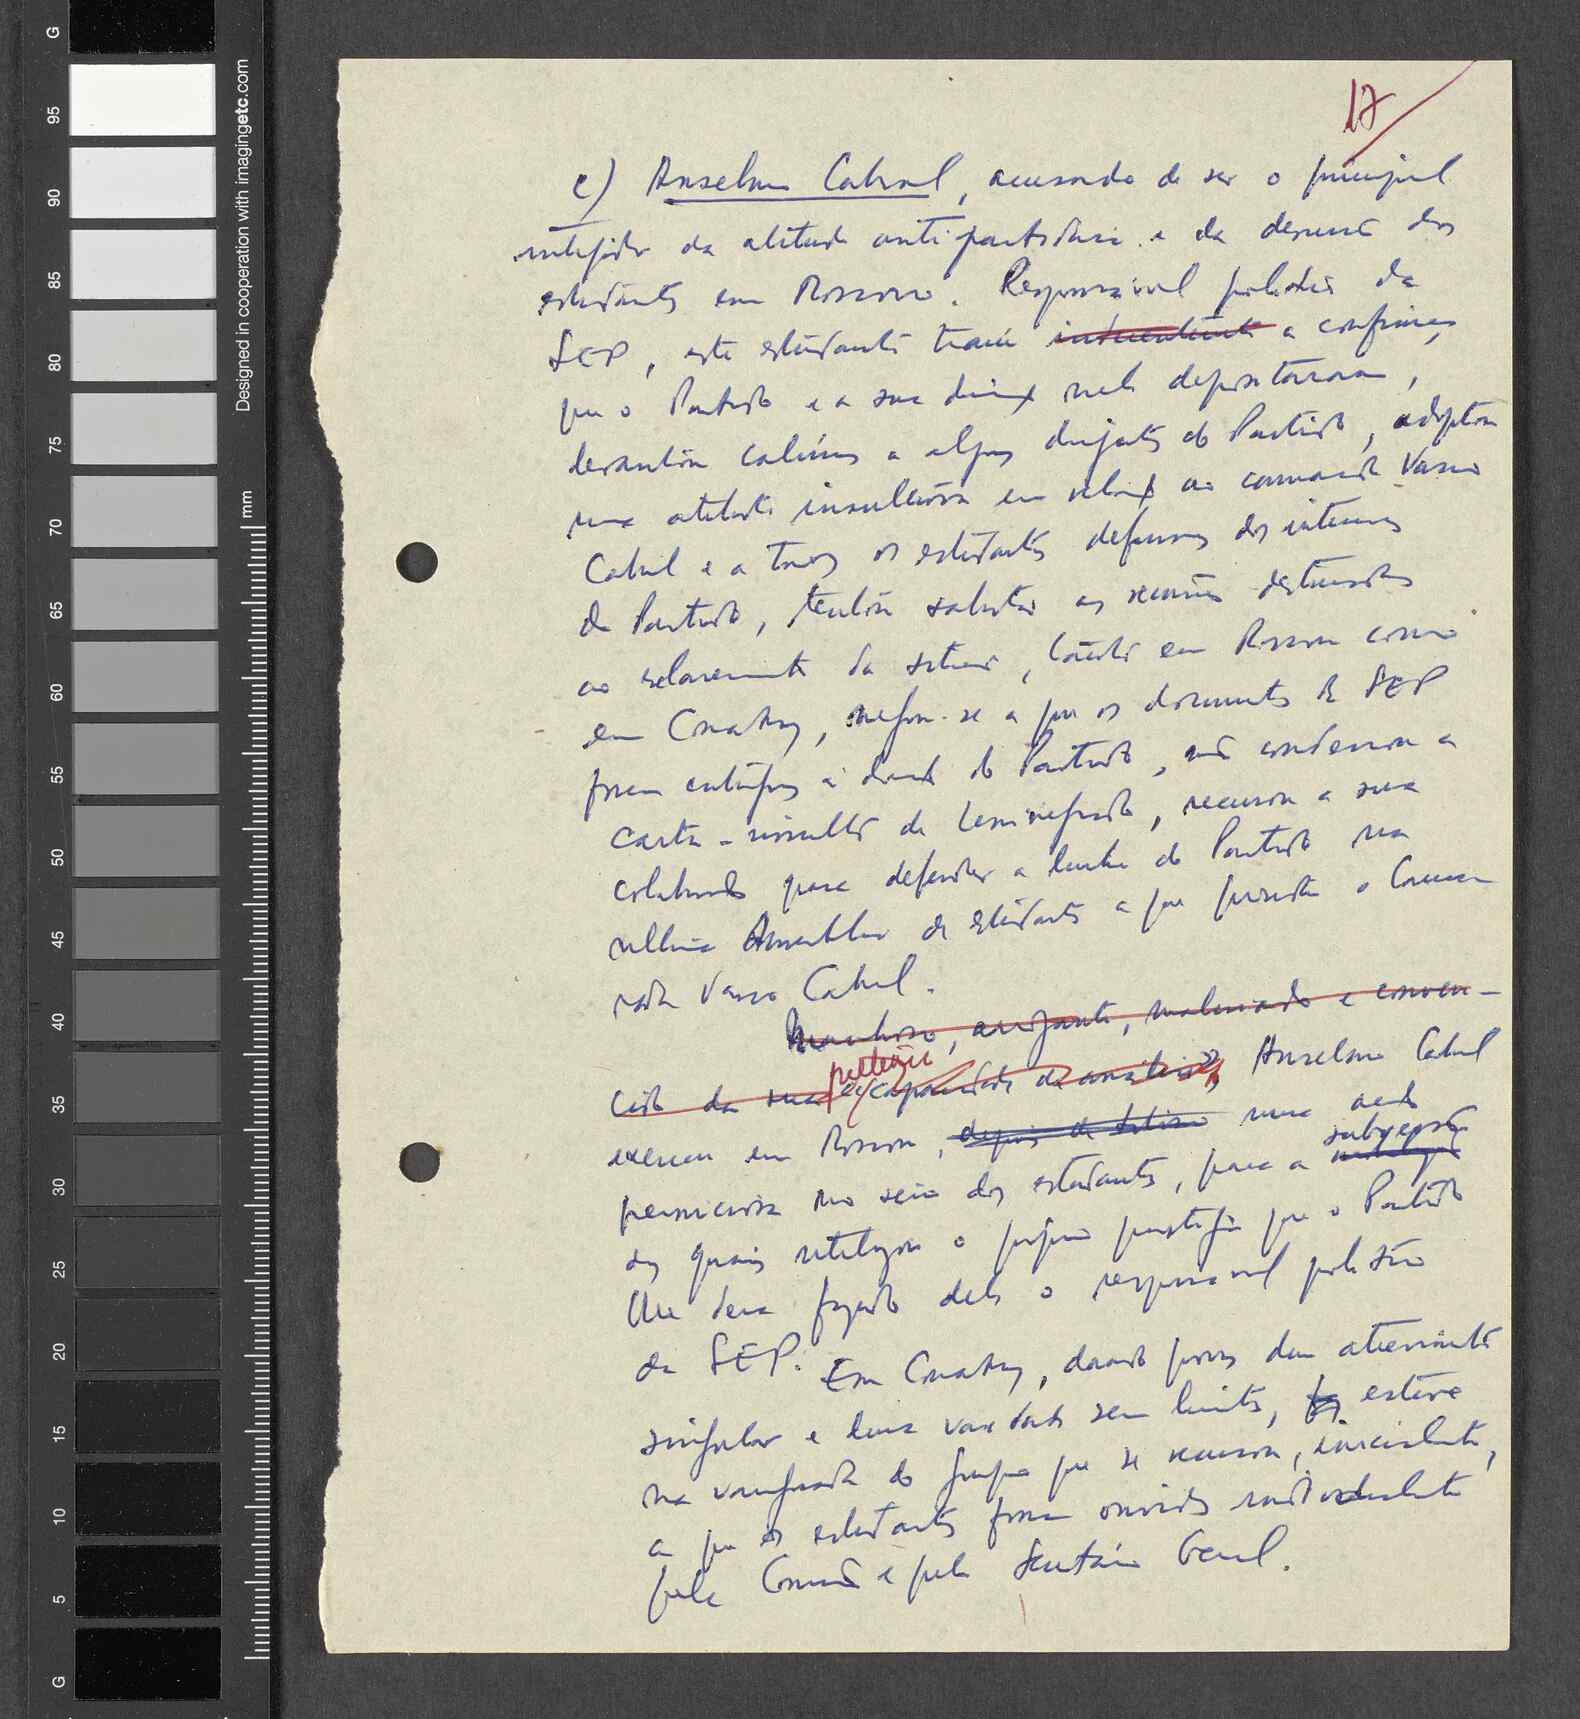 17
e) Anselmo Cabral, acusado de ser o principal
instigador da atitude antipartidária e da desunião dos
estudantes em Moscovo. Responsável político da
SEP, este estudante traiu a confiança
que o Partido e a sua direcção nele depositaram,
levantou calúnias a alguns dirigentes do Partido, adoptou
uma atitude insultuosa em relação ao camarada Vasco
Cabral e a todos os estudantes defensores dos interesses
do Partido, tentou sabotar as reuniões destinadas
ao esclarecimento da situação, tanto em Moscovo como
em Conakry, negou-se a que os documentos da SEP
fossem entregues à direcção do Partido, não condenou a
carta-insulto de Leninegrado, recusou a sua
colaboração para defender a linha do Partido na
última Assembleia de estudantes a que presidiu o Cama-
rada Vasco Cabral.
Manhoso, arrogante, malcriado e conven-
cido da sua capacidade de análise, Anselmo Cabral
exerceu em Moscovo, depois de uma acção
subversão
perniciosa no seio dos estudantes, para a
dos quais utilizou o próprio prestígio que o Partido
lhe dera fazendo dele o responsável político
da SEP. Em Conakry, dando provas dum atrevimento
singular e duma vaidade sem limites, esteve
na vanguarda do grupo que se recusou, inicialmente,
a que os estudantes fossem ouvidos individualmente
pela Comissão e pelo Secretário Geral.